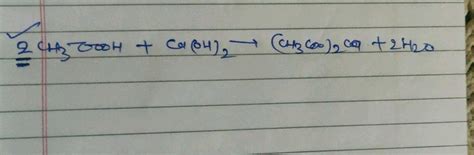 2 CH₃COOH + Ca(OH)₂ → (CH₃COO)₂Ca + 2H₂O